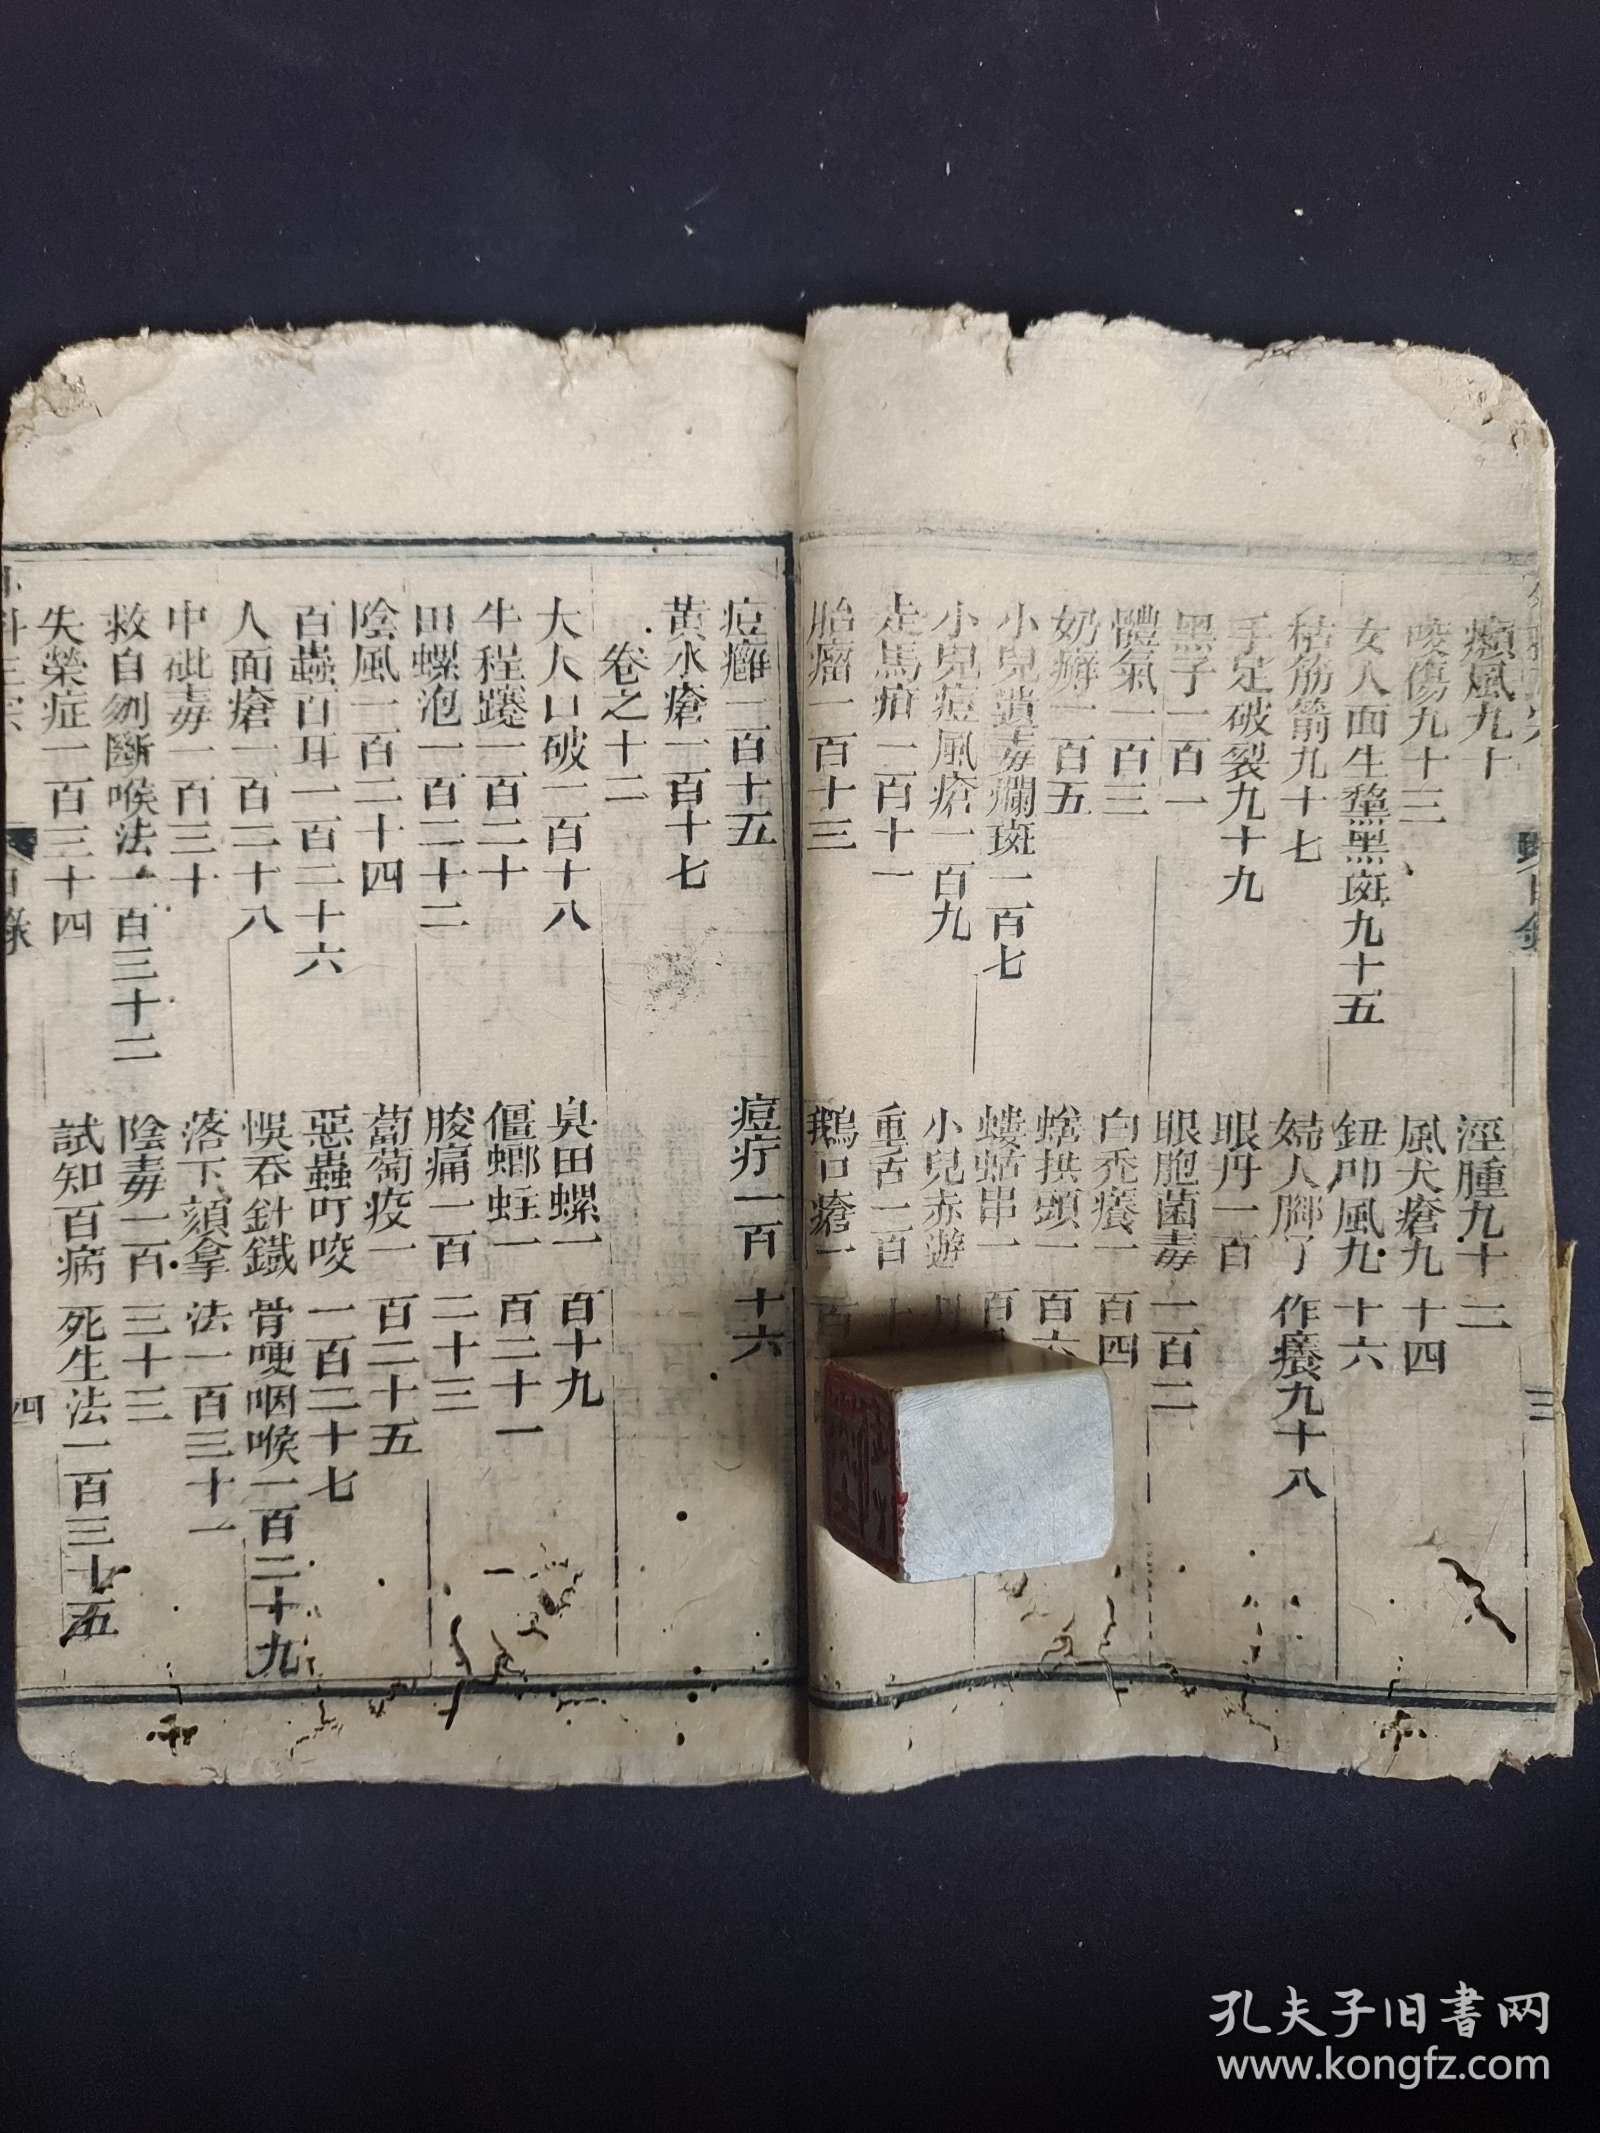 癩風九十
涇腫九十二
咬傷九十三
風犬瘡九十四
女人面生黧黑斑九十五
鈕叩風九十六
秸筋箭九十七
婦人脚了作癢九十八
手足破裂九十九
眼丹一百
黑子一百一
眼胞菌毒一百二
體氣一百三
白禿瘡一百四
奶癬一百五
蟮拱頭一百六
小兒遺毒爛斑一百七
螻蛄串一百
小兒痘風瘡一百九
小兒赤遊丹
走馬疳一百十一
重舌一百十
胎瘤一百十三
鵝口瘡一百
三
痘癰一百十五
痘疔一百十六
黃水瘡一百十七
卷之十二
大人口破一百十八
臭田螺一百十九
牛程蹇一百二十
僵螂蛀一百二十一
田螺泡一百二十二
腹痛一百二十三
陰風一百二十四
葡萄疫一百二十五
百蟲入耳一百二十六
惡蟲叮咬一百二十七
人面瘡一百二十八
悞吞針鐵骨哽咽喉一百二十九
中砒毒一百三十
落下頦拿法一百三十一
救自刎斷喉法一百三十二
陰毒一百三十三
失榮症一百三十四
試知百病死生法一百三十五
外科正宗
目錄
四
孔夫子旧書网
www.kongfz.com